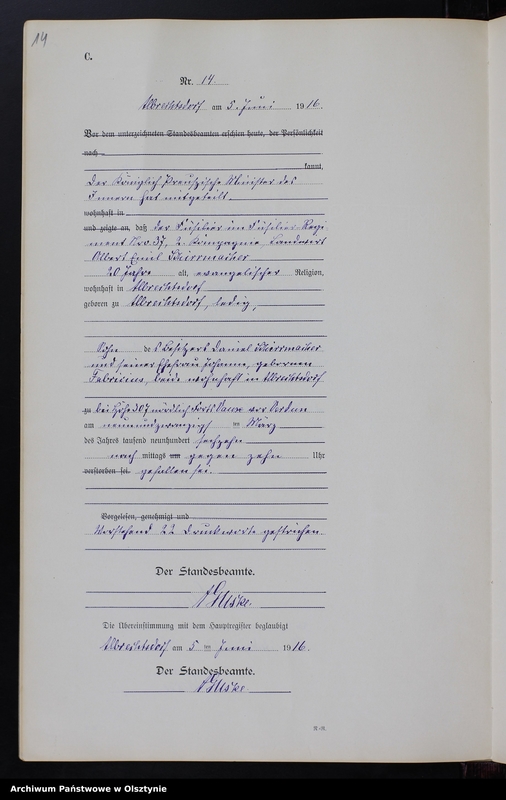 14
C.
Nr. 14
Albrechtsdorf am 5. Juni 1916.
Vor dem unterzeichneten Standesbeamten erschien heute, der Persönlichkeit
nach
kannt,
Der Königlich Preußische Minister des
Innern hat mitgeteilt
wohnhaft in
und zeigte an, daß der Füsilier im Füsilier-Regi
ment Nro. 37, 2. Kompagnie, Landwirt
Albert Emil Schirrmacher
20 Jahre alt, evangelischer Religion,
wohnhaft in Albrechtsdorf
geboren zu Albrechtsdorf, ledig,
Sohn des Besitzers Daniel Schirrmacher
und seiner Ehefrau Johanne, geborenen
Fabricius, beide wohnhaft in Albrechtsdorf
zu bei Höhe 307 nördlich Forts Vaux vor Verdun
am neunundzwanzigsten März
des Jahres tausend neunhundert sechzehn
nach mittags um gegen zehn Uhr
verstorben sei. gefallen sei.
Vorgelesen, genehmigt und
Vorstehend 22 Druckworte gestrichen.
Der Standesbeamte.
Die Übereinstimmung mit dem Hauptregister beglaubigt
Albrechtsdorf am 5 ten Juni 1916.
Der Standesbeamte.
Archiwum Państwowe w Olsztynie